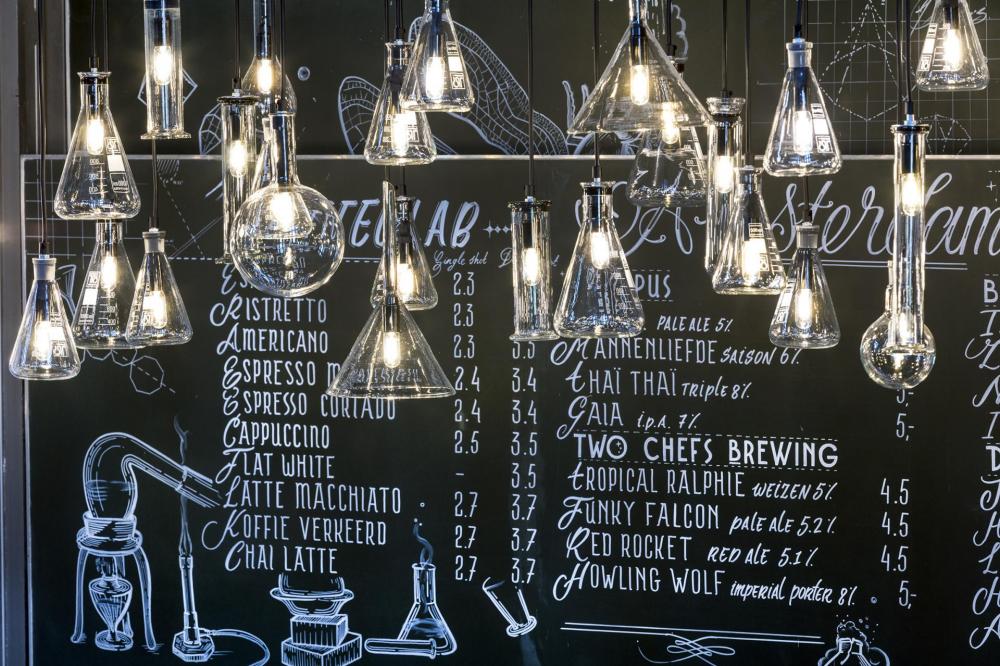 LAB
Single shot
ESPRESSO 2.3
RISTRETTO 2.3
AMERICANO 2.3 3.3
ESPRESSO 2.4 3.4
ESPRESSO CORTADO 2.4 3.4
CAPPUCCINO 2.5 3.5
FLAT WHITE - 3.5
LATTE MACCHIATO 2.7 3.7
KOFFIE VERKEERD 2.7 3.7
CHAI LATTE 2.7 3.7
PALE ALE 5%
MANNENLIEFDE SAISON 6%
THAÏ THAÏ TRIPLE 8% 5,-
GAIA I.P.A. 7% 5,-
TWO CHEFS BREWING
TROPICAL RALPHIE WEIZEN 5% 4.5
FUNKY FALCON PALE ALE 5.2% 4.5
RED ROCKET RED ALE 5.1% 4.5
HOWLING WOLF IMPERIAL PORTER 8% 5,-